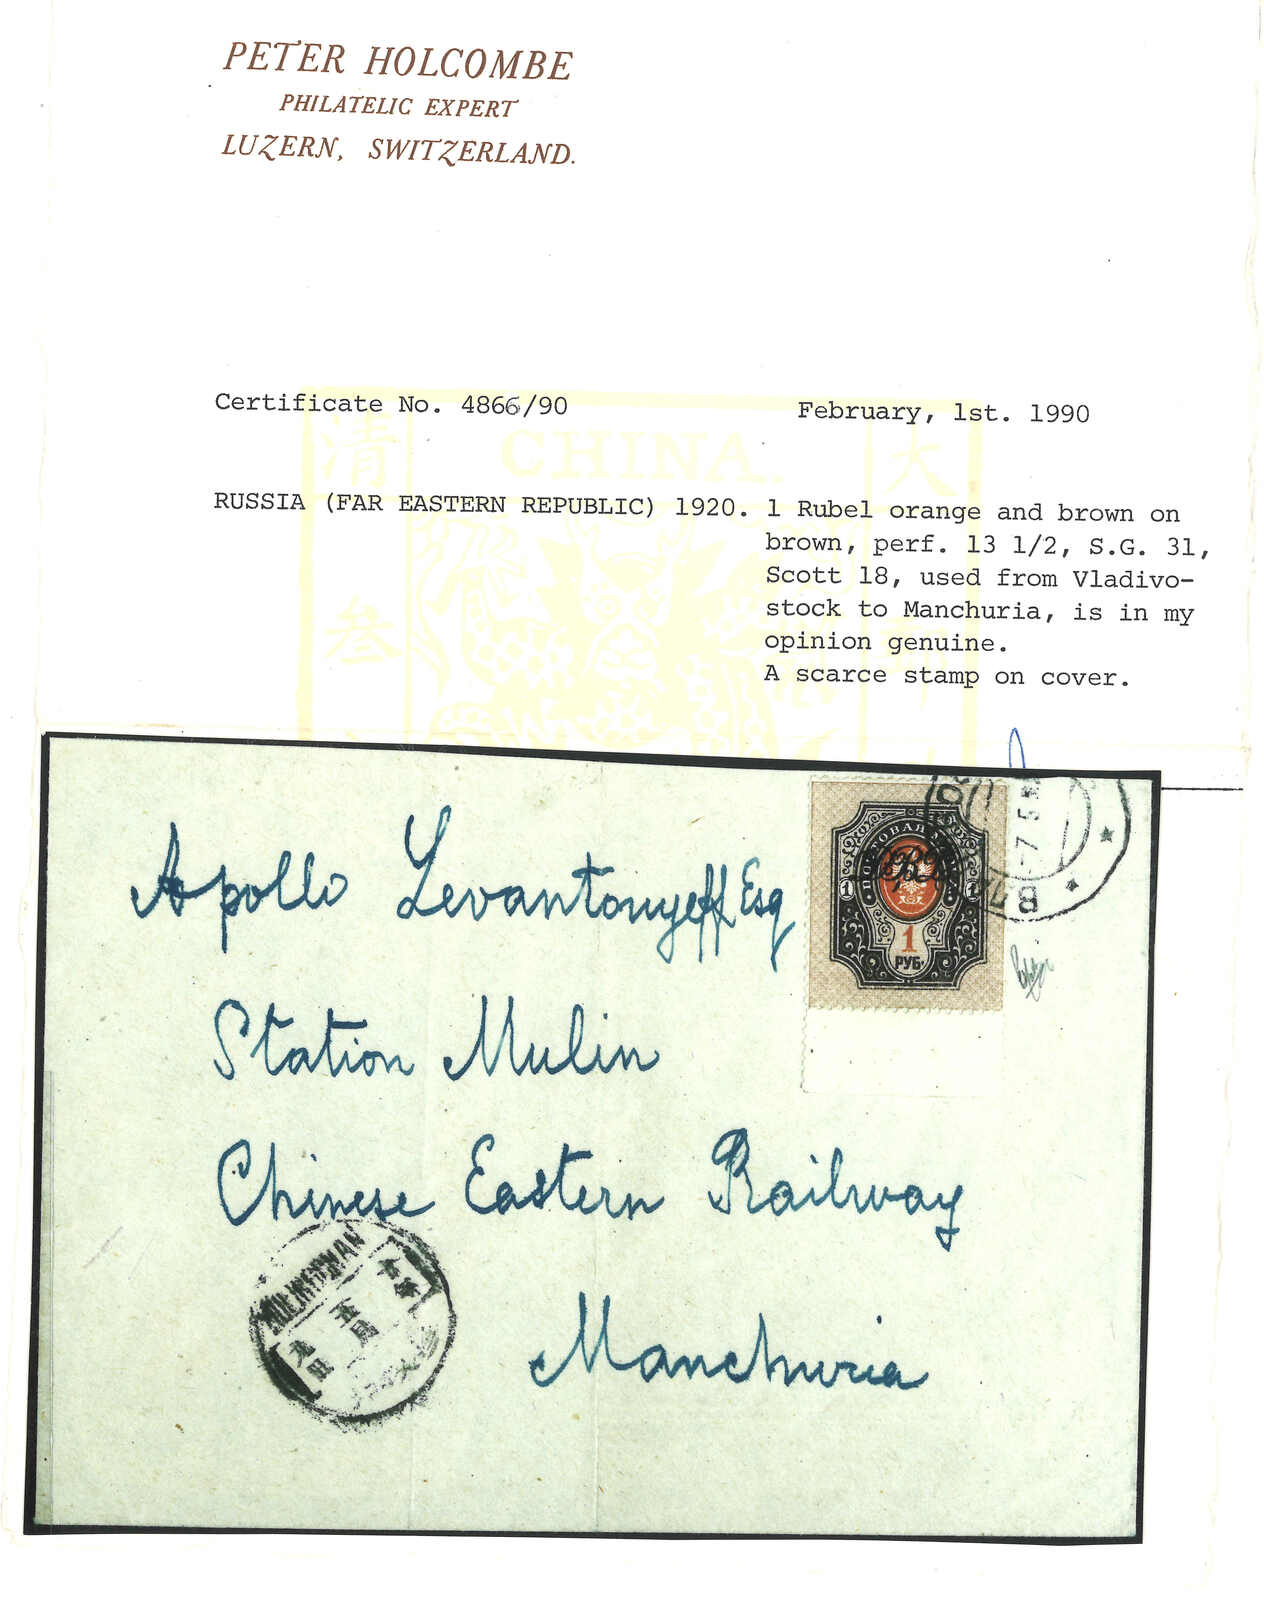 PETER HOLCOMBE
PHILATELIC EXPERT
LUZERN, SWITZERLAND.
Certificate No. 4866/90
February, 1st. 1990
清
CHINA.
大
叁
RUSSIA (FAR EASTERN REPUBLIC) 1920. 1 Rubel orange and brown on
brown, perf. 13 1/2, S.G. 31,
Scott 18, used from Vladivo-
stock to Manchuria, is in my
opinion genuine.
A scarce stamp on cover.
Apollo Levantonyeff Esq
Station Mulin
Chinese Eastern Railway
Manchuria
ПОЧТОВАЯ
1
1
1
РУБ.
-7 5
ВЛ
九
日
五
月